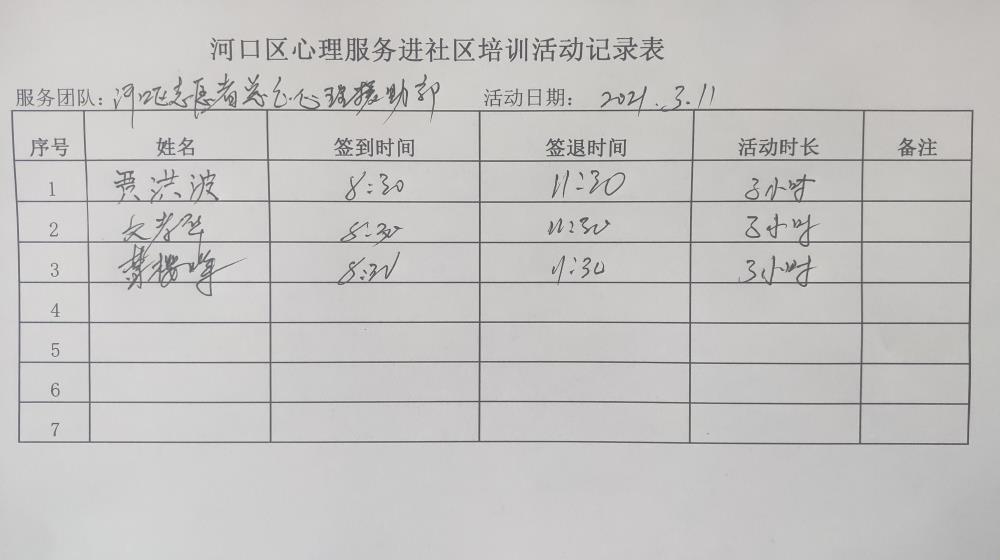 河口区心理服务进社区培训活动记录表
服务团队: 河口区志愿者总会心理援助部 活动日期: 2021.3.11
序号 姓名 签到时间 签退时间 活动时长 备注
1 贾洪波 8:30 11:30 3小时
2 8:30 11:30 3小时
3 8:30 11:30 3小时
4
5
6
7